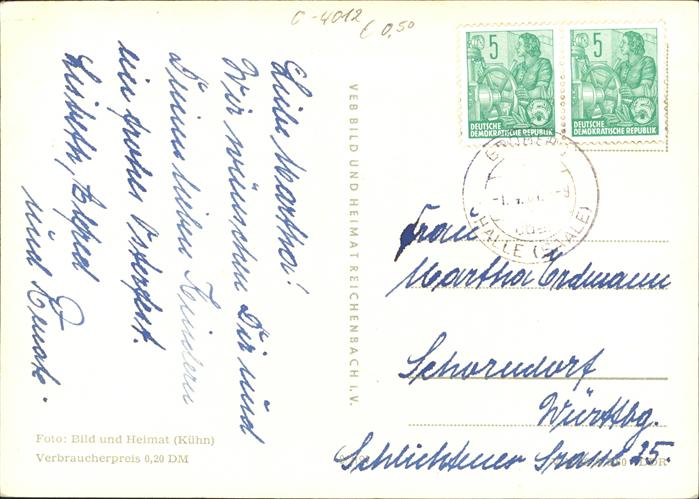 0-4012
€ 0,50
Liebe Martha!
Wir wünschen Dir und
Deinen lieben Kindern
ein frohes Osterfest.
Lisbeth, Alfred
und Renate.
VEB BILD UND HEIMAT REICHENBACH I. V.
Foto: Bild und Heimat (Kühn)
Verbraucherpreis 0,20 DM
5
DEUTSCHE
DEMOKRATISCHE REPUBLIK
5
DEUTSCHE
DEMOKRATISCHE REPUBLIK
HALLE (SAALE)
Frau
Martha Erdmann
Schorndorf
Württbg.
Schlichtener Strasse 25.
DDR